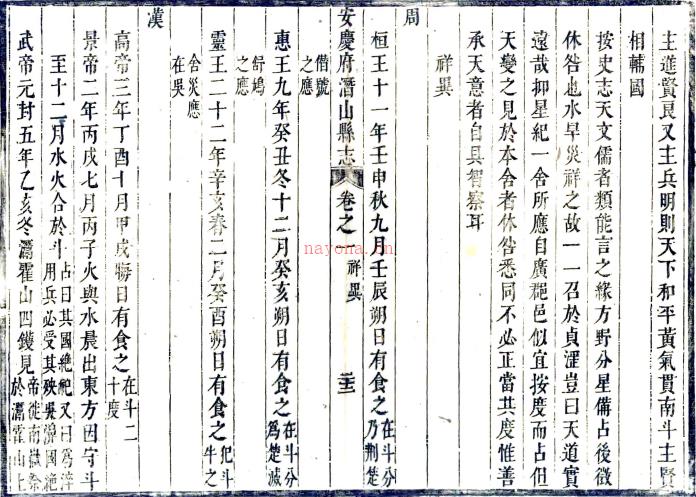 主進賢良又主兵明則天下和平黃氣貫南斗主賢
相輔國
按史志天文儒者類能言之緣方野分星備占後徵
休咎也水旱災祥之故一一召於貞淫豈曰天道實
遠哉抑星紀一舍所應自廣郡邑似宜按度而占但
天變之見於本舍者休咎悉同不必正當其度惟善
承天意者自具智察耳
祥異
周
桓王十一年壬申秋九月壬辰朔日有食之在斗分乃荆楚
安慶府潛山縣志 卷之一 祥異 二十三
僭號之應
惠王九年癸丑冬十二月癸亥朔日有食之在斗分為楚滅
舒鳩之應
靈王二十二年辛亥春二月癸酉朔日有食之犯斗牛之
舍災應在吳
漢
高帝三年丁酉十月甲戌晦日有食之在斗二十度
景帝二年丙戌七月丙子火與水晨出東方因守斗
至十二月水火合於斗占曰其國絕祀又曰為淬用兵必受其殃吳滅國絕
武帝元封五年乙亥冬灊霍山四鑊見帝徙南嶽祭於灊霍山上
nayona.cn